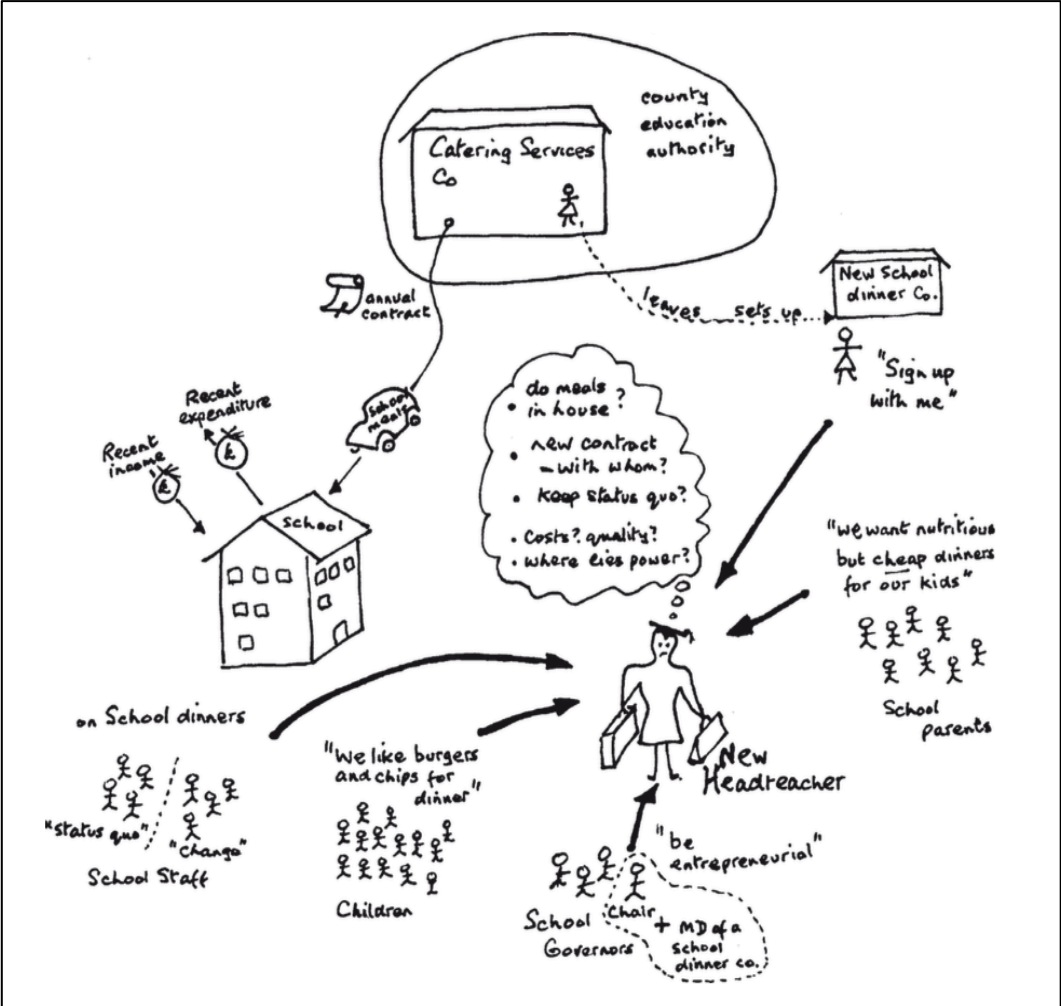 county
education
authority
Catering Services
Co
annual
contract
leaves sets up
New School
dinner Co.
"Sign up
with me"
School
meals
Recent
expenditure
£
Recent
income
£
School
• do meals
in house?
• new contract
– with whom?
• keep status quo?
• costs? quality?
• where lies power?
"we want nutritious
but cheap dinners
for our kids"
School
parents
on School dinners
"status quo"
"change"
School Staff
"We like burgers
and chips for
dinner"
Children
New
Headteacher
"be
entrepreneurial"
School
Governors
Chair
+ MD of a
school
dinner co.